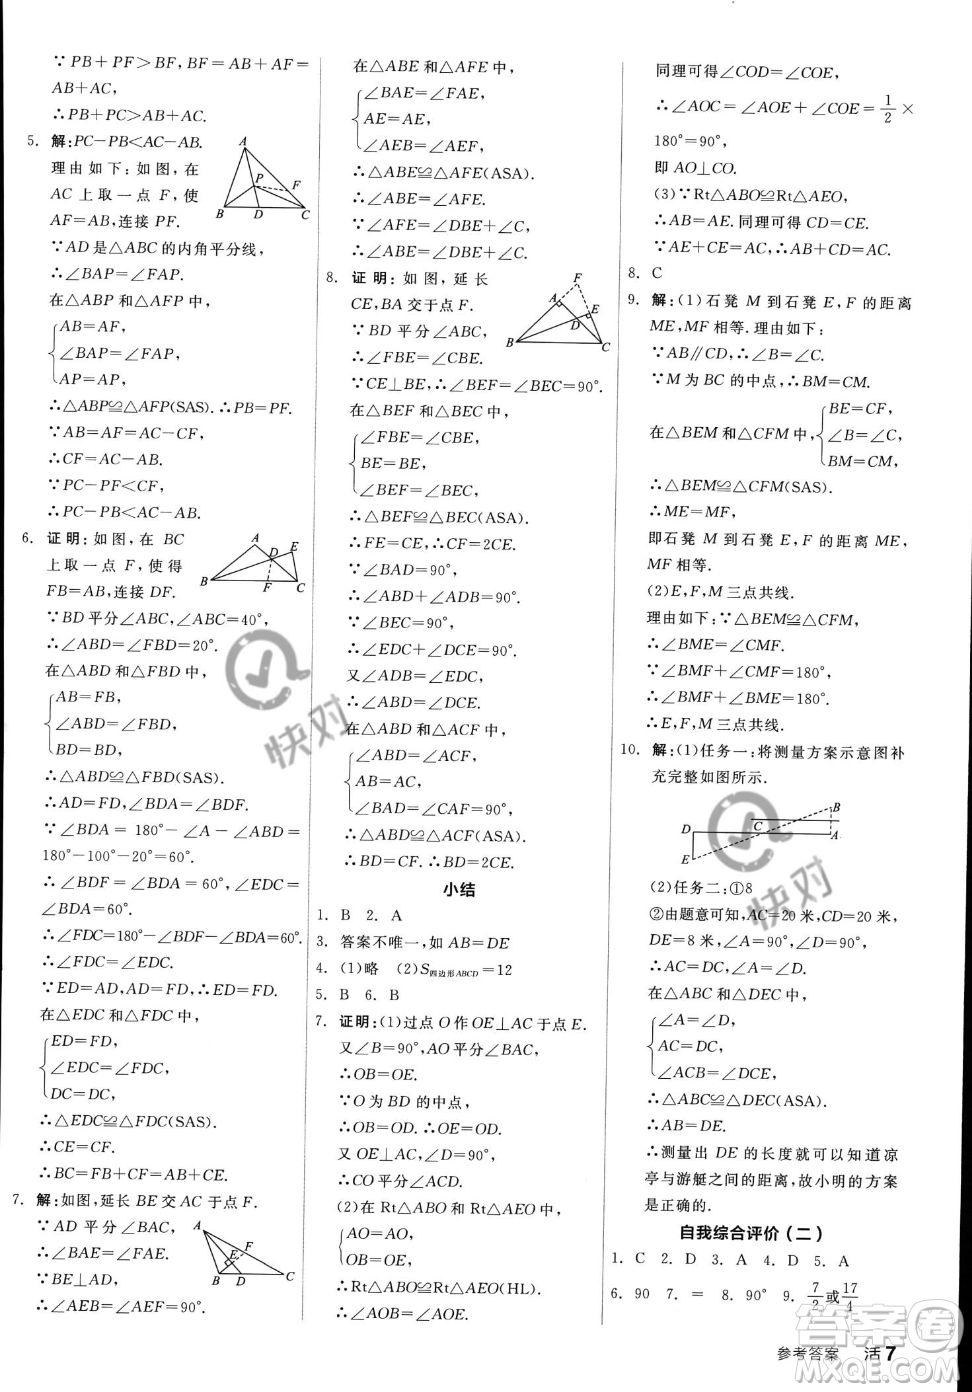 ∵PB+PF>BF,BF=AB+AF=
AB+AC,
∴PB+PC>AB+AC.
5. 解:PC-PB<AC-AB.
理由如下:如图,在
AC 上取一点 F,使
AF=AB,连接 PF.
A
P
F
B
D
C
∵AD 是△ABC 的内角平分线,
∴∠BAP=∠FAP.
在△ABP 和△AFP 中,
AB=AF,
∠BAP=∠FAP,
AP=AP,
∴△ABP≌△AFP(SAS).∴PB=PF.
∵AB=AF=AC-CF,
∴CF=AC-AB.
∵PC-PF<CF,
∴PC-PB<AC-AB.
6. 证明:如图,在 BC
上取一点 F,使得
FB=AB,连接 DF.
A
D
E
B
F
C
∵BD 平分∠ABC,∠ABC=40°,
∴∠ABD=∠FBD=20°.
在△ABD 和△FBD 中,
AB=FB,
∠ABD=∠FBD,
BD=BD,
∴△ABD≌△FBD(SAS).
∴AD=FD,∠BDA=∠BDF.
∵∠BDA=180°-∠A-∠ABD=
180°-100°-20°=60°.
∴∠BDF=∠BDA=60°,∠EDC=
∠BDA=60°.
∴∠FDC=180°-∠BDF-∠BDA=60°.
∴∠FDC=∠EDC.
∵ED=AD,AD=FD,∴ED=FD.
在△EDC 和△FDC 中,
ED=FD,
∠EDC=∠FDC,
DC=DC,
∴△EDC≌△FDC(SAS).
∴CE=CF.
∴BC=FB+CF=AB+CE.
7. 解:如图,延长 BE 交 AC 于点 F.
∵AD 平分∠BAC,
∴∠BAE=∠FAE.
∵BE⊥AD,
∴∠AEB=∠AEF=90°.
A
F
E
B
D
C
在△ABE 和△AFE 中,
∠BAE=∠FAE,
AE=AE,
∠AEB=∠AEF,
∴△ABE≌△AFE(ASA).
∴∠ABE=∠AFE.
∵∠AFE=∠DBE+∠C,
∴∠ABE=∠DBE+∠C.
8. 证明:如图,延长
CE,BA 交于点 F.
∵BD 平分∠ABC,
∴∠FBE=∠CBE.
F
A
E
D
B
C
∵CE⊥BE,∴∠BEF=∠BEC=90°.
在△BEF 和△BEC 中,
∠FBE=∠CBE,
BE=BE,
∠BEF=∠BEC,
∴△BEF≌△BEC(ASA).
∴FE=CE,∴CF=2CE.
∵∠BAD=90°,
∴∠ABD+∠ADB=90°.
∵∠BEC=90°,
∴∠EDC+∠DCE=90°.
又∠ADB=∠EDC,
∴∠ABD=∠DCE.
在△ABD 和△ACF 中,
∠ABD=∠ACF,
AB=AC,
∠BAD=∠CAF=90°,
∴△ABD≌△ACF(ASA).
∴BD=CF.∴BD=2CE.
小结
1. B 2. A
3. 答案不唯一,如 AB=DE
4. (1)略 (2)S四边形ABCD=12
5. B 6. B
7. 证明:(1)过点 O 作 OE⊥AC 于点 E.
又∠B=90°,AO 平分∠BAC,
∴OB=OE.
∵O 为 BD 的中点,
∴OB=OD.∴OE=OD.
又 OE⊥AC,∠D=90°,
∴CO 平分∠ACD.
(2)在 Rt△ABO 和 Rt△AEO 中,
AO=AO,
OB=OE,
∴Rt△ABO≌Rt△AEO(HL).
∴∠AOB=∠AOE.
同理可得∠COD=∠COE,
∴∠AOC=∠AOE+∠COE=1/2×
180°=90°,
即 AO⊥CO.
(3)∵Rt△ABO≌Rt△AEO,
∴AB=AE.同理可得 CD=CE.
∵AE+CE=AC,∴AB+CD=AC.
8. C
9. 解:(1)石凳 M 到石凳 E,F 的距离
ME,MF 相等.理由如下:
∵AB∥CD,∴∠B=∠C.
∵M 为 BC 的中点,∴BM=CM.
在△BEM 和△CFM 中,
BE=CF,
∠B=∠C,
BM=CM,
∴△BEM≌△CFM(SAS).
∴ME=MF,
即石凳 M 到石凳 E,F 的距离 ME,
MF 相等.
(2)E,F,M 三点共线.
理由如下:∵△BEM≌△CFM,
∴∠BME=∠CMF.
∵∠BMF+∠CMF=180°,
∴∠BMF+∠BME=180°.
∴E,F,M 三点共线.
10. 解:(1)任务一:将测量方案示意图补
充完整如图所示.
B
D
C
A
E
(2)任务二:①8
②由题意可知,AC=20 米,CD=20 米,
DE=8 米,∠A=90°,∠D=90°.
∴∠A=∠D.
在△ABC 和△DEC 中,
∠A=∠D,
AC=DC,
∠ACB=∠DCE,
∴△ABC≌△DEC(ASA).
∴AB=DE.
∴测量出 DE 的长度就可以知道凉
亭与游艇之间的距离,故小明的方案
是正确的.
自我综合评价(二)
1. C 2. D 3. A 4. D 5. A
6. 90 7. = 8. 90° 9. 7/2或17/4
参考答案 活7
快对
快对
答案圈
MXQE.COM